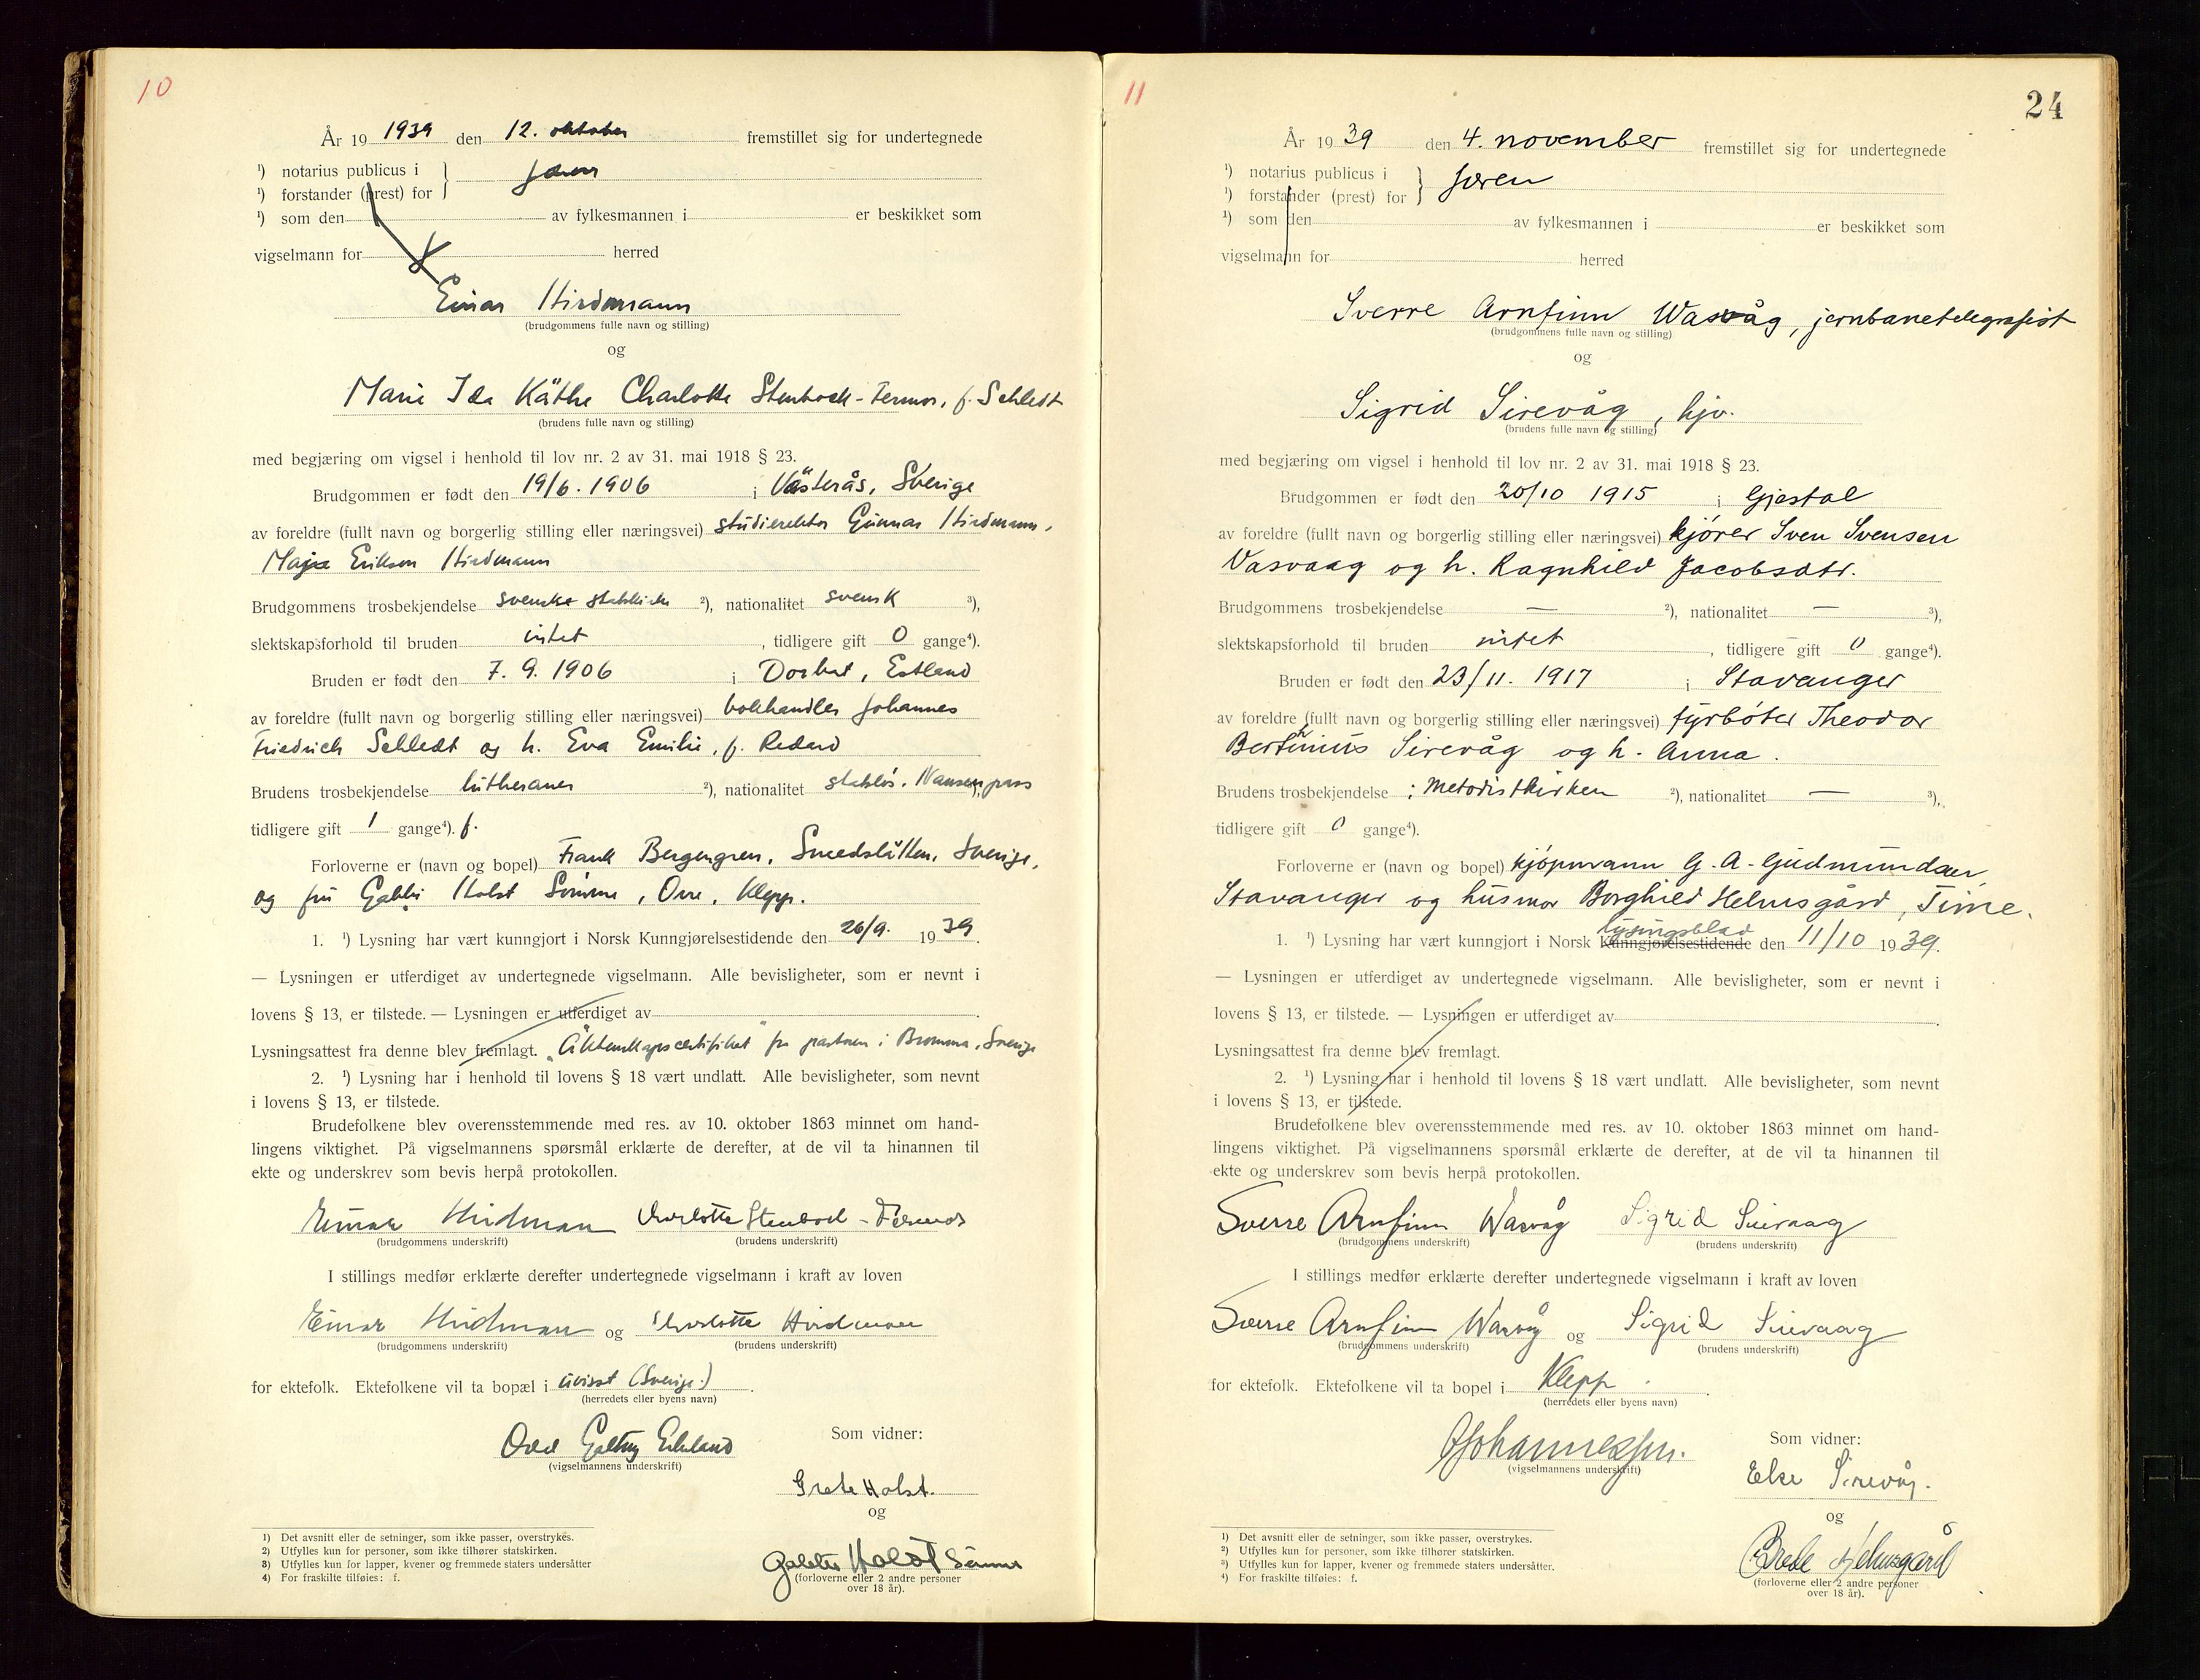 10
År 19 1939 den 12. oktober fremstillet sig for undertegnede
¹) notarius publicus i
¹) forstander (prest) for } Jæren
¹) som den av fylkesmannen i er beskikket som
vigselmann for herred
Einar Hirdmann
(brudgommens fulle navn og stilling)
og
Marie Ida Käthe Charlotte Stenbock-Fermor, f. Schledt
(brudens fulle navn og stilling)
med begjæring om vigsel i henhold til lov nr. 2 av 31. mai 1918 § 23.
Brudgommen er født den 19/6. 1906 i Västerås, Sverige
av foreldre (fullt navn og borgerlig stilling eller næringsvei) studierektor Gunnar Hirdmann,
Maja Erikson Hirdmann
Brudgommens trosbekjendelse svenske statskirke ²), nationalitet svensk ³),
slektskapsforhold til bruden intet , tidligere gift 0 gange⁴).
Bruden er født den 7. 9. 1906 i Dorpat, Estland
av foreldre (fullt navn og borgerlig stilling eller næringsvei) bokhandler Johannes
Friedrich Schledt og h. Eva Emilie, f. Redard
Brudens trosbekjendelse lutheraner ²), nationalitet statsløs. Nansenpass
tidligere gift 1 gange⁴). f.
Forloverne er (navn og bopel) Frank Bergengren, Smedslätten, Sverige,
og fru Gabbi Holst Sømme, Orre, Klepp.
1. ¹) Lysning har vært kunngjort i Norsk Kunngjørelsestidende den 26/9. 19 39.
— Lysningen er utferdiget av undertegnede vigselmann. Alle bevisligheter, som er nevnt i
lovens § 13, er tilstede. — Lysningen er utferdiget av .
Lysningsattest fra denne blev fremlagt. „Äktenskapscertifikat" fra pastorn i Bromma, Sverige
2. ¹) Lysning har i henhold til lovens § 18 vært undlatt. Alle bevisligheter, som nevnt
i lovens § 13, er tilstede.
Brudefolkene blev overensstemmende med res. av 10. oktober 1863 minnet om hand-
lingens viktighet. På vigselmannens spørsmål erklærte de derefter, at de vil ta hinannen til
ekte og underskrev som bevis herpå protokollen.
Einar Hirdman Charlotte Stenbock-Fermor
(brudgommens underskrift) (brudens underskrift)
I stillings medfør erklærte derefter undertegnede vigselmann i kraft av loven
Einar Hirdman og Charlotte Hirdman
(brudgommens underskrift) (brudens underskrift)
for ektefolk. Ektefolkene vil ta bopæl i uvisst (Sverige.) .
(herredets eller byens navn)
Odd Galtung Eskeland
(vigselmannens underskrift)
Som vidner:
Grete Holst.
og
Holst Sømme
(forloverne eller 2 andre personer
over 18 år).
¹) Det avsnitt eller de setninger, som ikke passer, overstrykes.
²) Utfylles kun for personer, som ikke tilhører statskirken.
³) Utfylles kun for lapper, kvener og fremmede staters undersåtter
⁴) For fraskilte tilføies: f.
11
24
År 19 39 den 4. november fremstillet sig for undertegnede
¹) notarius publicus i
¹) forstander (prest) for } Jæren
¹) som den av fylkesmannen i er beskikket som
vigselmann for herred
Sverre Arnfinn Wasvåg, jernbanetelegrafist
(brudgommens fulle navn og stilling)
og
Sigrid Sirevåg, hjv.
(brudens fulle navn og stilling)
med begjæring om vigsel i henhold til lov nr. 2 av 31. mai 1918 § 23.
Brudgommen er født den 20/10 1915 i Gjestal
av foreldre (fullt navn og borgerlig stilling eller næringsvei) kjører Sven Svensen
Vasvaag og h. Ragnhild Jacobsdtr.
Brudgommens trosbekjendelse — ²), nationalitet — ³),
slektskapsforhold til bruden intet , tidligere gift 0 gange⁴).
Bruden er født den 23/11. 1917 i Stavanger
av foreldre (fullt navn og borgerlig stilling eller næringsvei) fyrbøter Theodor
Berthinius Sirevåg og h. Anna.
Brudens trosbekjendelse : Metodistkirken ²), nationalitet — ³),
tidligere gift 0 gange⁴).
Forloverne er (navn og bopel) kjøpmann G. A. Gudmundsen,
Stavanger og husmor Borghild Helmsgård, Time.
lysingsblad
1. ¹) Lysning har vært kunngjort i Norsk Kunngjørelsestidende den 11/10 19 39.
— Lysningen er utferdiget av undertegnede vigselmann. Alle bevisligheter, som er nevnt i
lovens § 13, er tilstede. — Lysningen er utferdiget av .
Lysningsattest fra denne blev fremlagt.
2. ¹) Lysning har i henhold til lovens § 18 vært undlatt. Alle bevisligheter, som nevnt
i lovens § 13, er tilstede.
Brudefolkene blev overensstemmende med res. av 10. oktober 1863 minnet om hand-
lingens viktighet. På vigselmannens spørsmål erklærte de derefter, at de vil ta hinannen til
ekte og underskrev som bevis herpå protokollen.
Sverre Arnfinn Wasvåg Sigrid Sirevaag
(brudgommens underskrift) (brudens underskrift)
I stillings medfør erklærte derefter undertegnede vigselmann i kraft av loven
Sverre Arnfinn Wasvåg og Sigrid Sirevaag
(brudgommens underskrift) (brudens underskrift)
for ektefolk. Ektefolkene vil ta bopel i Klepp .
(herredets eller byens navn)
Johannessen.
(vigselmannens underskrift)
Som vidner:
Else Sirevåg.
og
Brede Helmsgård
(forloverne eller 2 andre personer
over 18 år).
¹) Det avsnitt eller de setninger, som ikke passer, overstrykes.
²) Utfylles kun for personer, som ikke tilhører statskirken.
³) Utfylles kun for lapper, kvener og fremmede staters undersåtter.
⁴) For fraskilte tilføies: f.